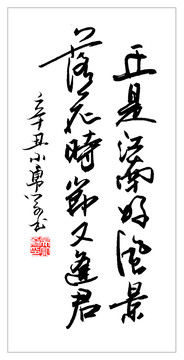 正是江南好風景
落花時節又逢君
辛丑小勇寫於